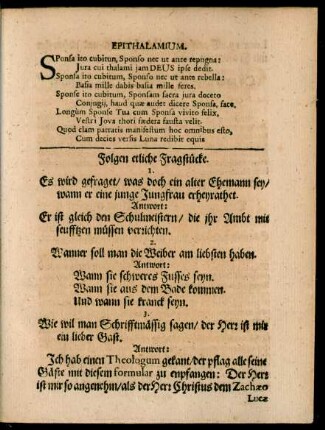 EPITHALAMIUM.
SPonsa ito cubitum, Sponso nec ut ante repugna:
Jura cui thalami jam DEUS ipse dedit.
Sponsa ito cubitum, Sponso nec ut ante rebella:
Basia mille dabis basia mille feres.
Sponse ito cubitum, Sponsam sacra jura doceto
Conjugij, haud quæ audet dicere Sponsa, face,
Longùm Sponse Tua cum Sponsa vivito felix,
Vestri Jova thori fœdera fausta velit.
Quod clam patraris manifestum hoc omnibus esto,
Cum decies versis Luna redibit equis
Folgen etliche Fragstücke.
1.
Es wird gefraget/ was doch ein alter Ehemann sey/
wann er eine junge Jungfrau erheyrathet.
Antwort:
Er ist gleich den Schulmeistern/ die jhr Ambt mit
seufftzen müssen verrichten.
2.
Wanner soll man die Weiber am liebsten haben.
Antwort:
Wann sie schweres Fusses seyn.
Wann sie aus dem Bade kommen.
Und wann sie kranck seyn.
3.
Wie wil man Schrifftmässig sagen/ der Herr ist mir
ein lieber Gast.
Antwort:
Jch hab einen Theologum gekant/ der pflag alle seine
Gäste mit diesem formular zu empfangen: Der Herr
ist mir so angenehm/ als der Herr Christus dem Zachæo
Lucæ